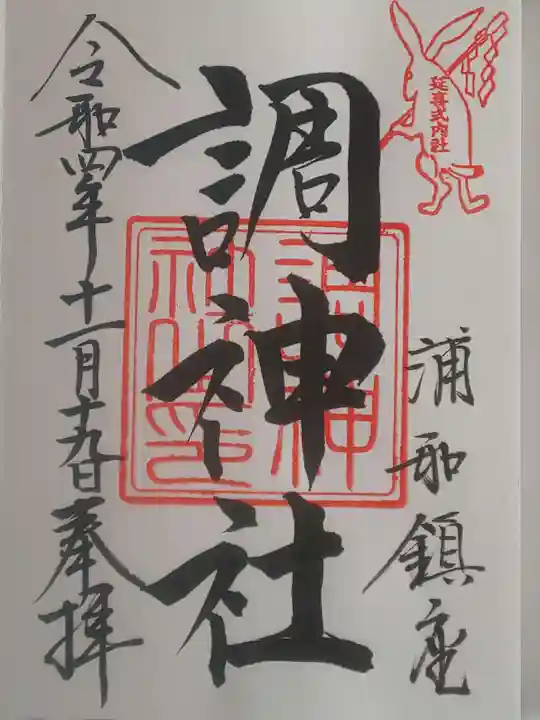 延喜式内社
浦和鎮座
調神社
調神社印
令和四年十一月十九日奉拝